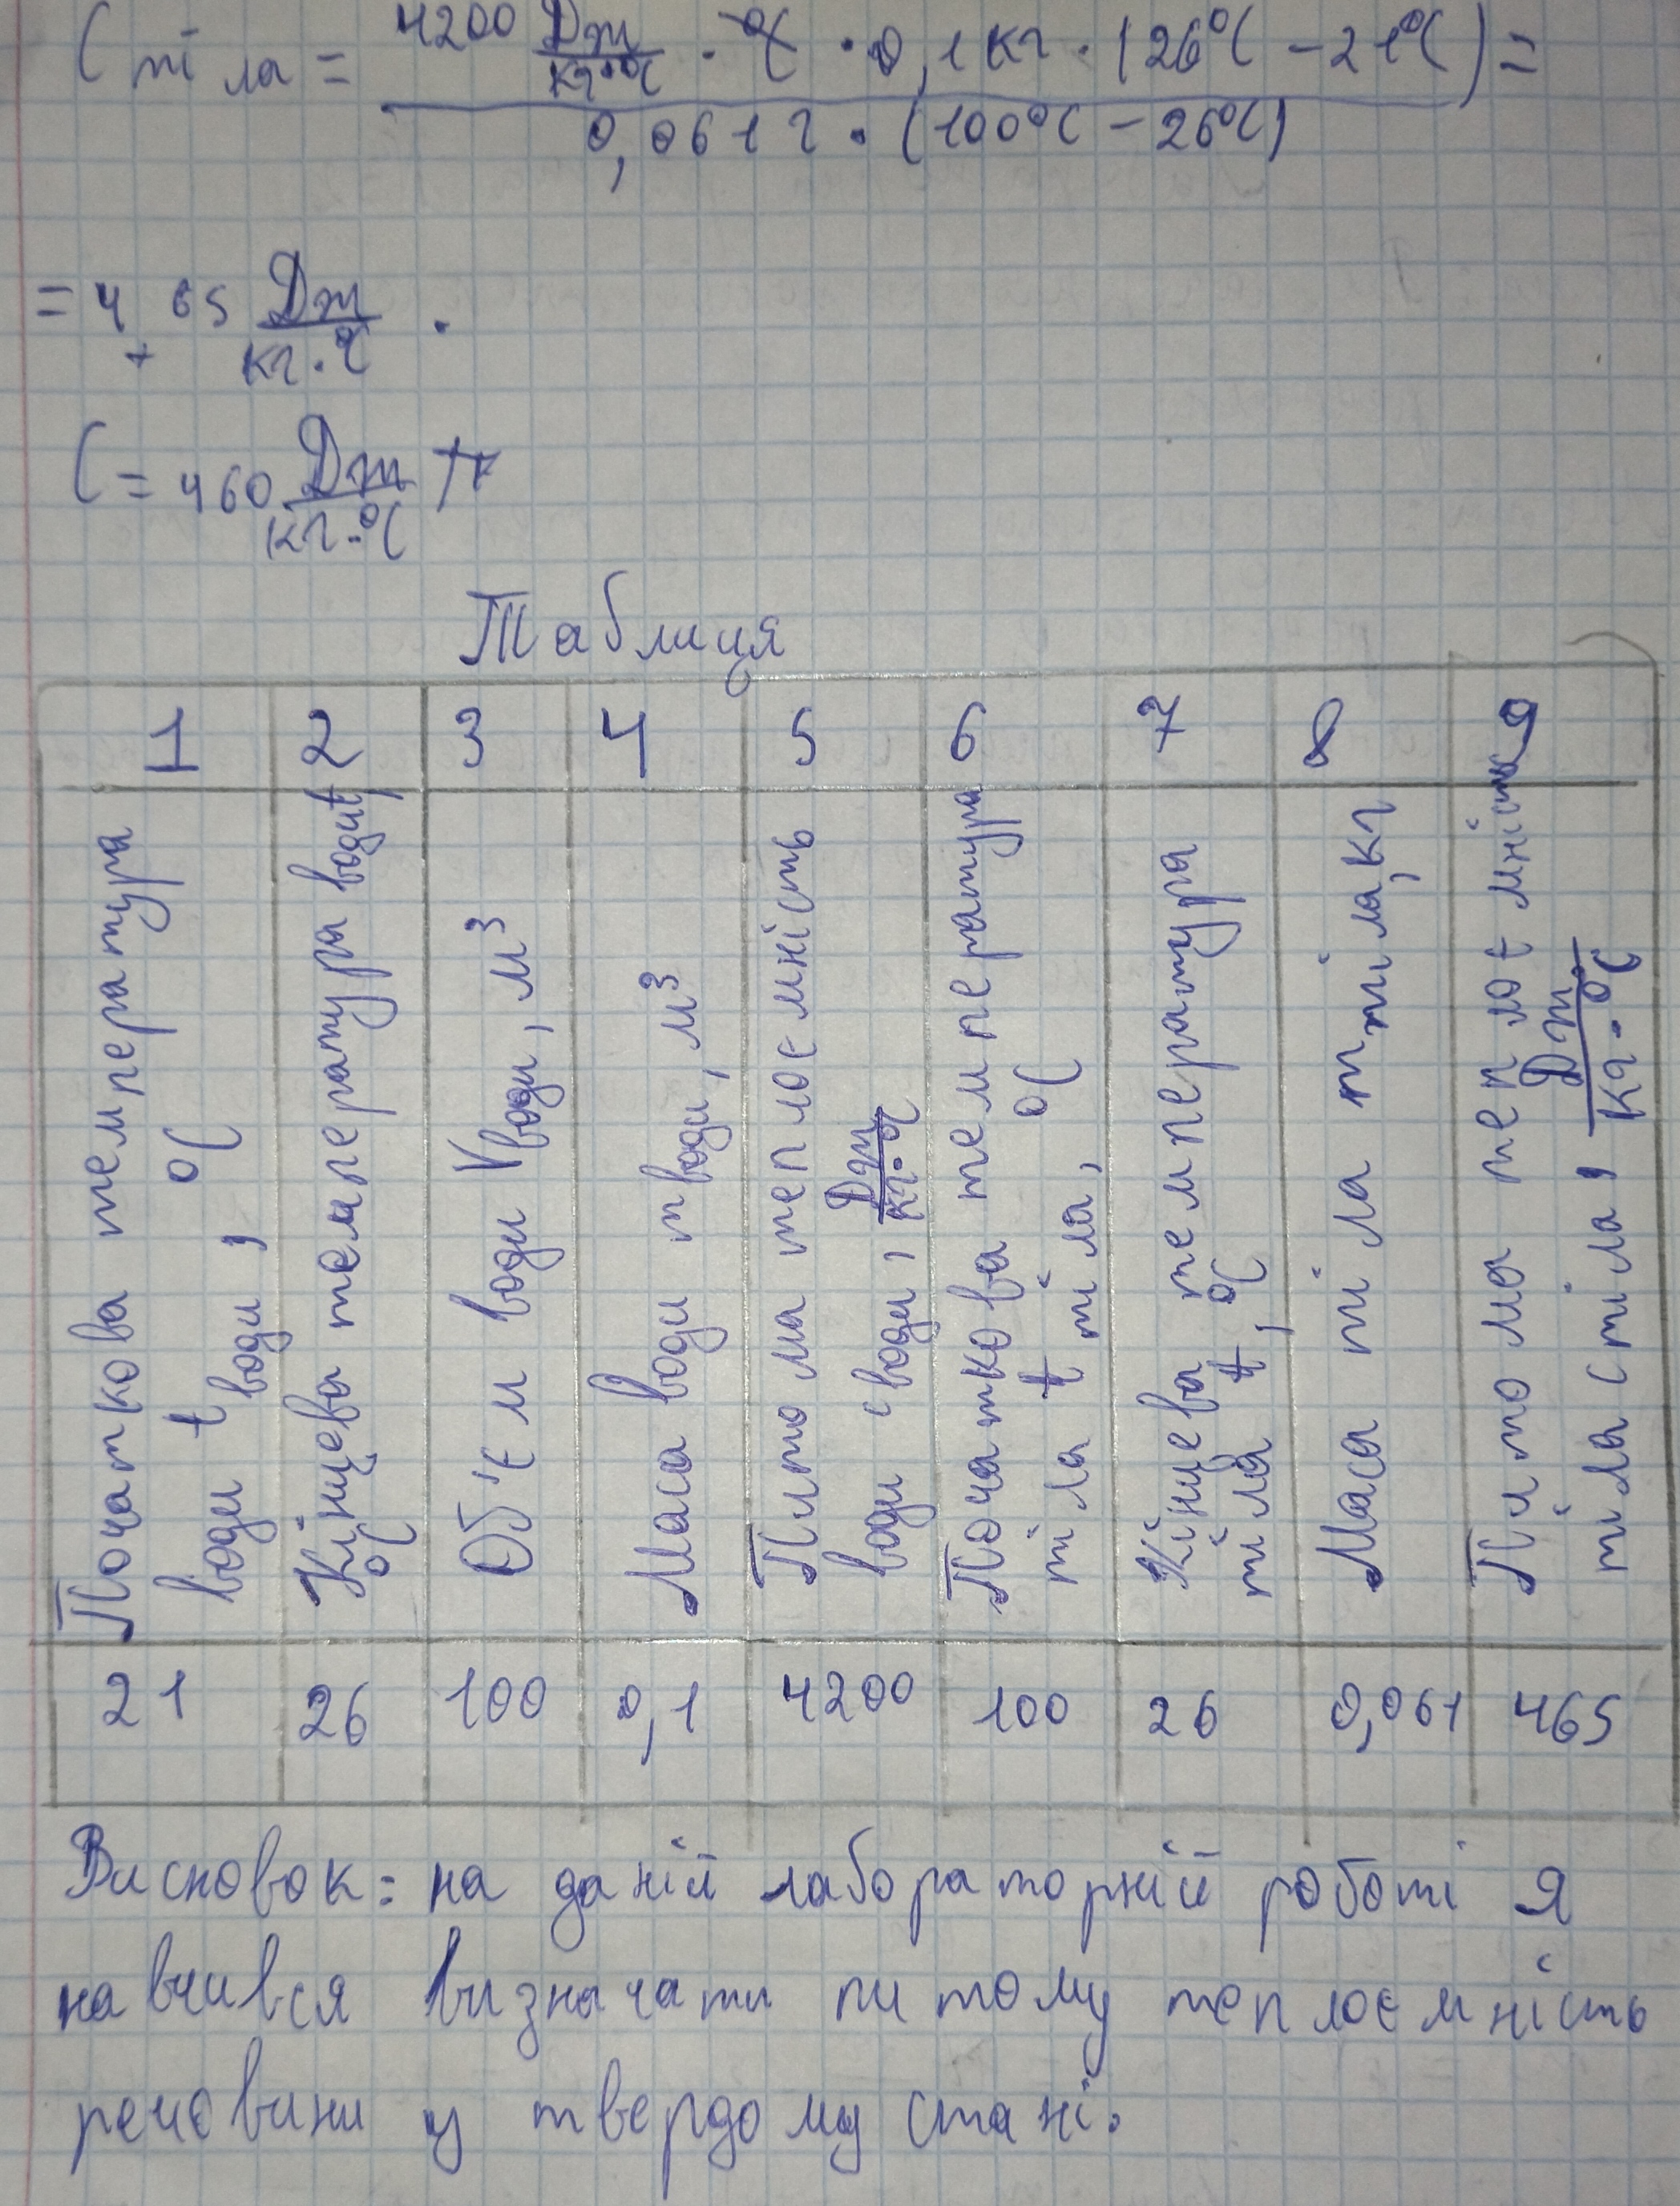 C тіла = 4200 Дж/кг·°C · °C · 0,1 кг · (26°C − 21°C) =
0,061 г · (100°C − 26°C)
= 465 Дж/кг·°C .
C = 460 Дж/кг·°C
Таблиця
1 2 3 4 5 6 7 8 9
Початкова температура
води t води, °C
Кінцева температура води t
°C
Об'єм води V води, м³
Маса води m води, м³
Питома теплоємність
води c води, Дж/кг·°C
Початкова температура
тіла t тіла, °C
Кінцева температура
тіла t, °C
Маса тіла m тіла, кг
Питома теплоємність
тіла c тіла, Дж/кг·°C
21 26 100 0,1 4200 100 26 0,061 465
Висновок: на даній лабораторній роботі я
навчився визначати питому теплоємність
речовини у твердому стані.